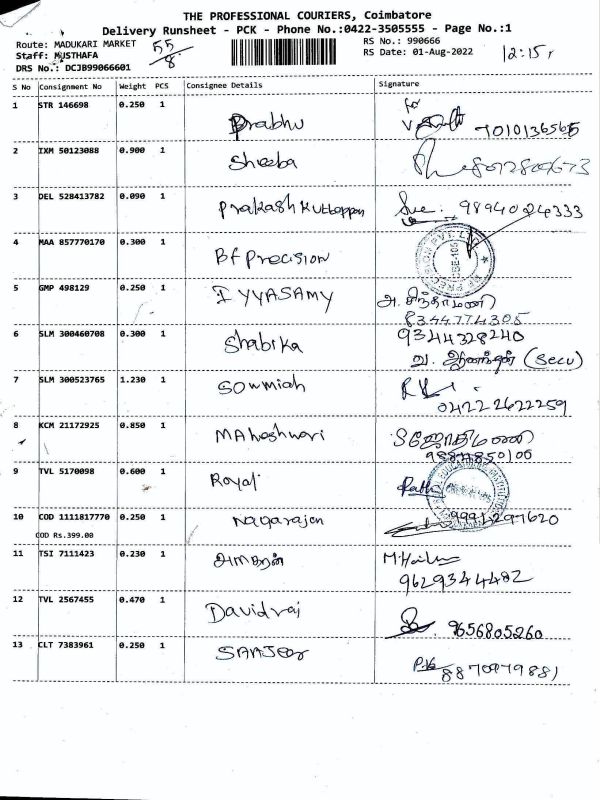 THE PROFESSIONAL COURIERS, Coimbatore
Delivery Runsheet - PCK - Phone No.:0422-3505555 - Page No.:1
Route: MADUKARI MARKET 55/8 RS No.: 990666
Staff: MUSTHAFA RS Date: 01-Aug-2022 12:15
DRS No.: DCJB99066601
S No Consignment No Weight PCS Consignee Details Signature
1 STR 146698 0.250 1 Prabhu for
7010136565
2 IXM 50123088 0.900 1 Sheeba
3 DEL 528413782 0.090 1 Prakash Kuttappan 9894024333
4 MAA 857770170 0.300 1 Bf Precision
5 GMP 498129 0.250 1 IYYASAMY அ. சிந்தாமணி
8344774305
6 SLM 300460708 0.300 1 Shabika 9344328240
(Secu)
7 SLM 300523765 1.230 1 Sowmiah
04222622259
8 KCM 21172925 0.850 1 MAheshwari ஜோதிமணி
9 TVL 5170098 0.600 1 Royal Rathi
10 COD 1111817770 0.250 1 Nagarajan
COD Rs.399.00
11 TSI 7111423 0.230 1
9629344482
12 TVL 2567455 0.470 1 Davidraj 9656805260
13 CLT 7383961 0.250 1 SANJEEV
8870979881